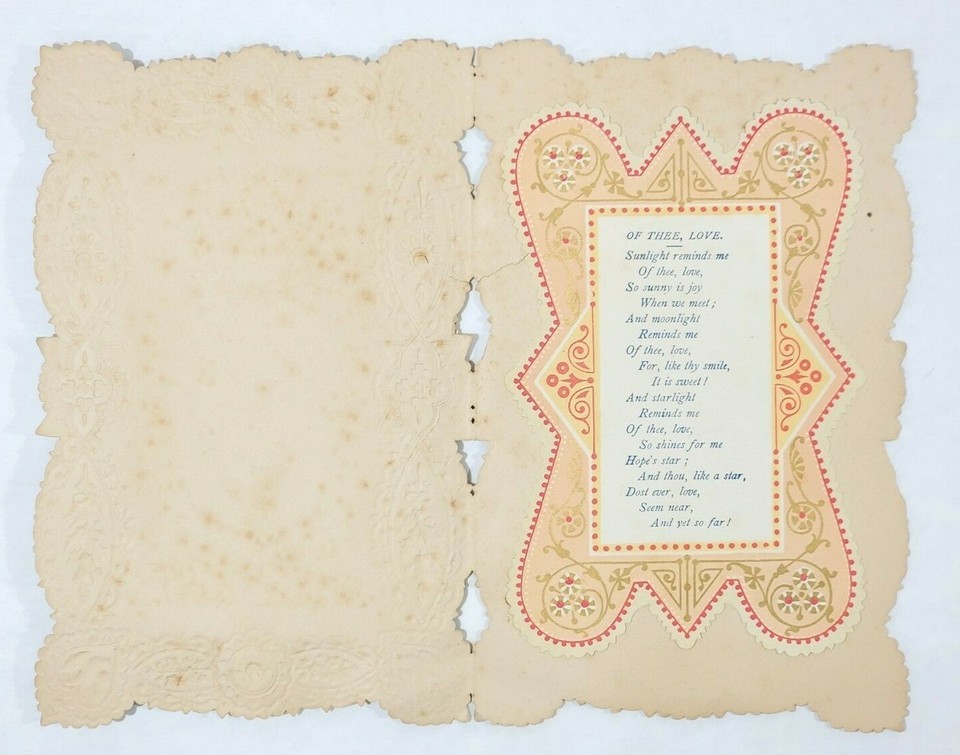 OF THEE, LOVE.
Sunlight reminds me
Of thee, love,
So sunny is joy
When we meet;
And moonlight
Reminds me
Of thee, love,
For, like thy smile,
It is sweet!
And starlight
Reminds me
Of thee, love,
So shines for me
Hope's star;
And thou, like a star,
Dost ever, love,
Seem near,
And yet so far!